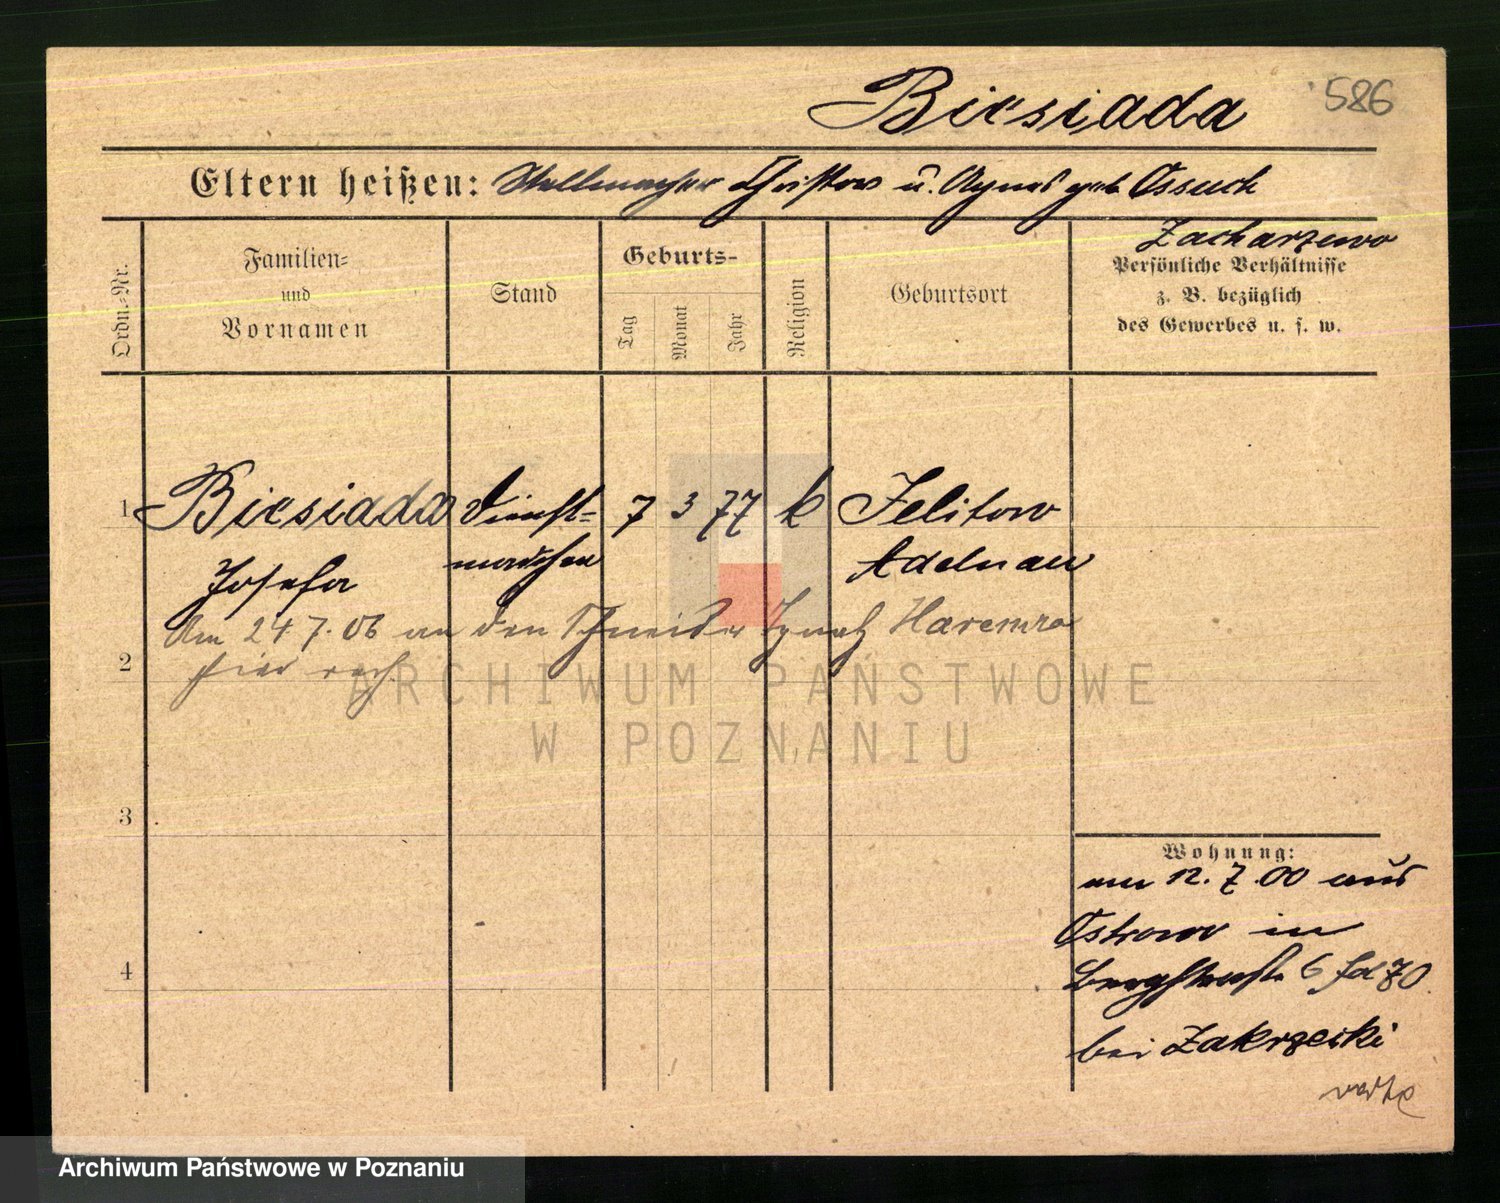 Biesiada 586
Eltern heißen: Stellmacher u. Agnes geb. Ossuch
Zacharzewo
Ordn.-Nr.
Familien-
und
Vornamen
Stand
Geburts-
Tag
Monat
Jahr
Religion
Geburtsort
Persönliche Verhältnisse
z. B. bezüglich
des Gewerbes u. s. w.
1 Biesiada Dienst- 7 3 77 k Felitow
Josefa mädchen Adelnau
Am 24.7.06 an den Schneider Ignatz Haremza
2 hier
ARCHIWUM PAŃSTWOWE
W POZNANIU
3
Wohnung:
am 12.7.00 aus
Ostrowo in
4 Bergstraße 6 70
bei Zakrzecki
Archiwum Państwowe w Poznaniu